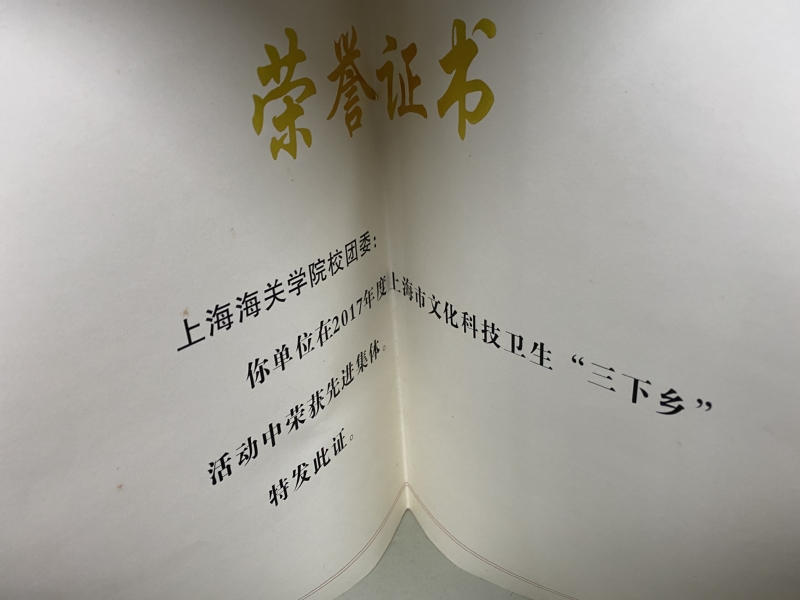 荣誉证书
上海海关学院校团委：
你单位在2017年度上海市文化科技卫生“三下乡”
活动中荣获先进集体。
特发此证。